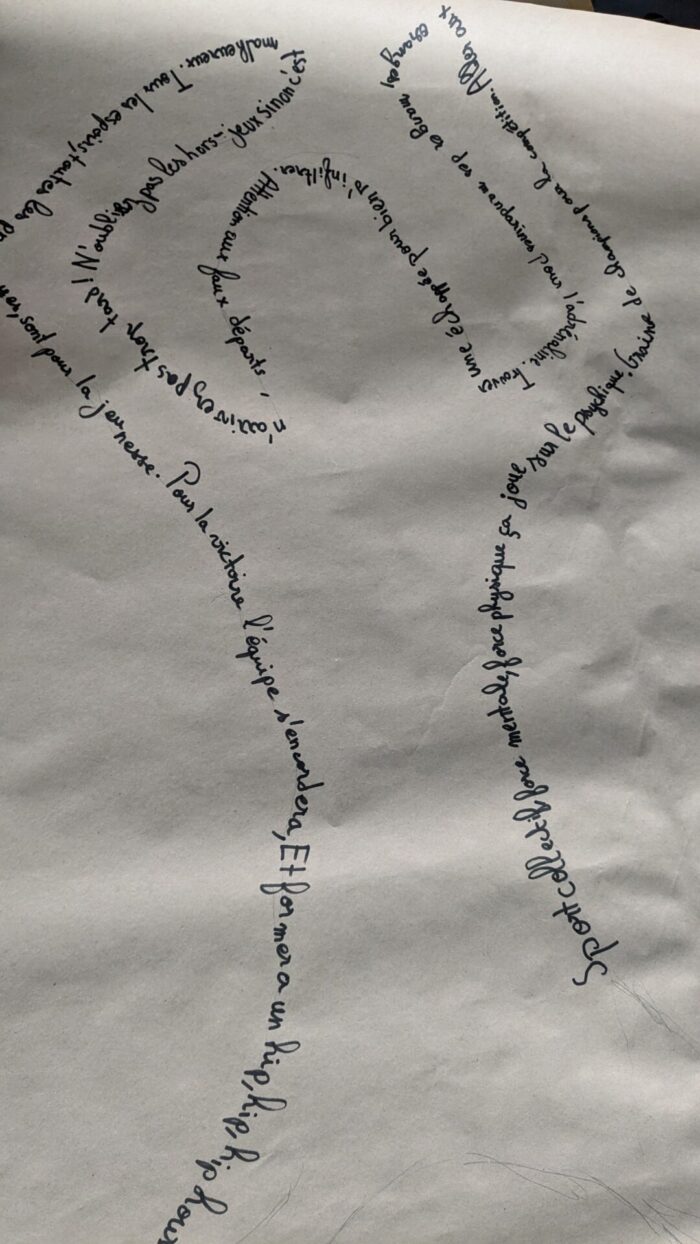 Sport collectif, force mentale, force physique ça joue sur le psychique. Graine
de champions pour la compétition. Allez aux
oranges,
l'adrénaline. Trouver
une échappée pour bien s'infiltrer. Attention aux faux départs,
n'arrivez pas trop tard! N'oubliez pas les hors-jeux sinon, c'est
malheureux. Tous les espoirs, toutes les
sont pour la jeunesse. Pour la victoire l'équipe s'encordera, Et formera un hip, hip, hip